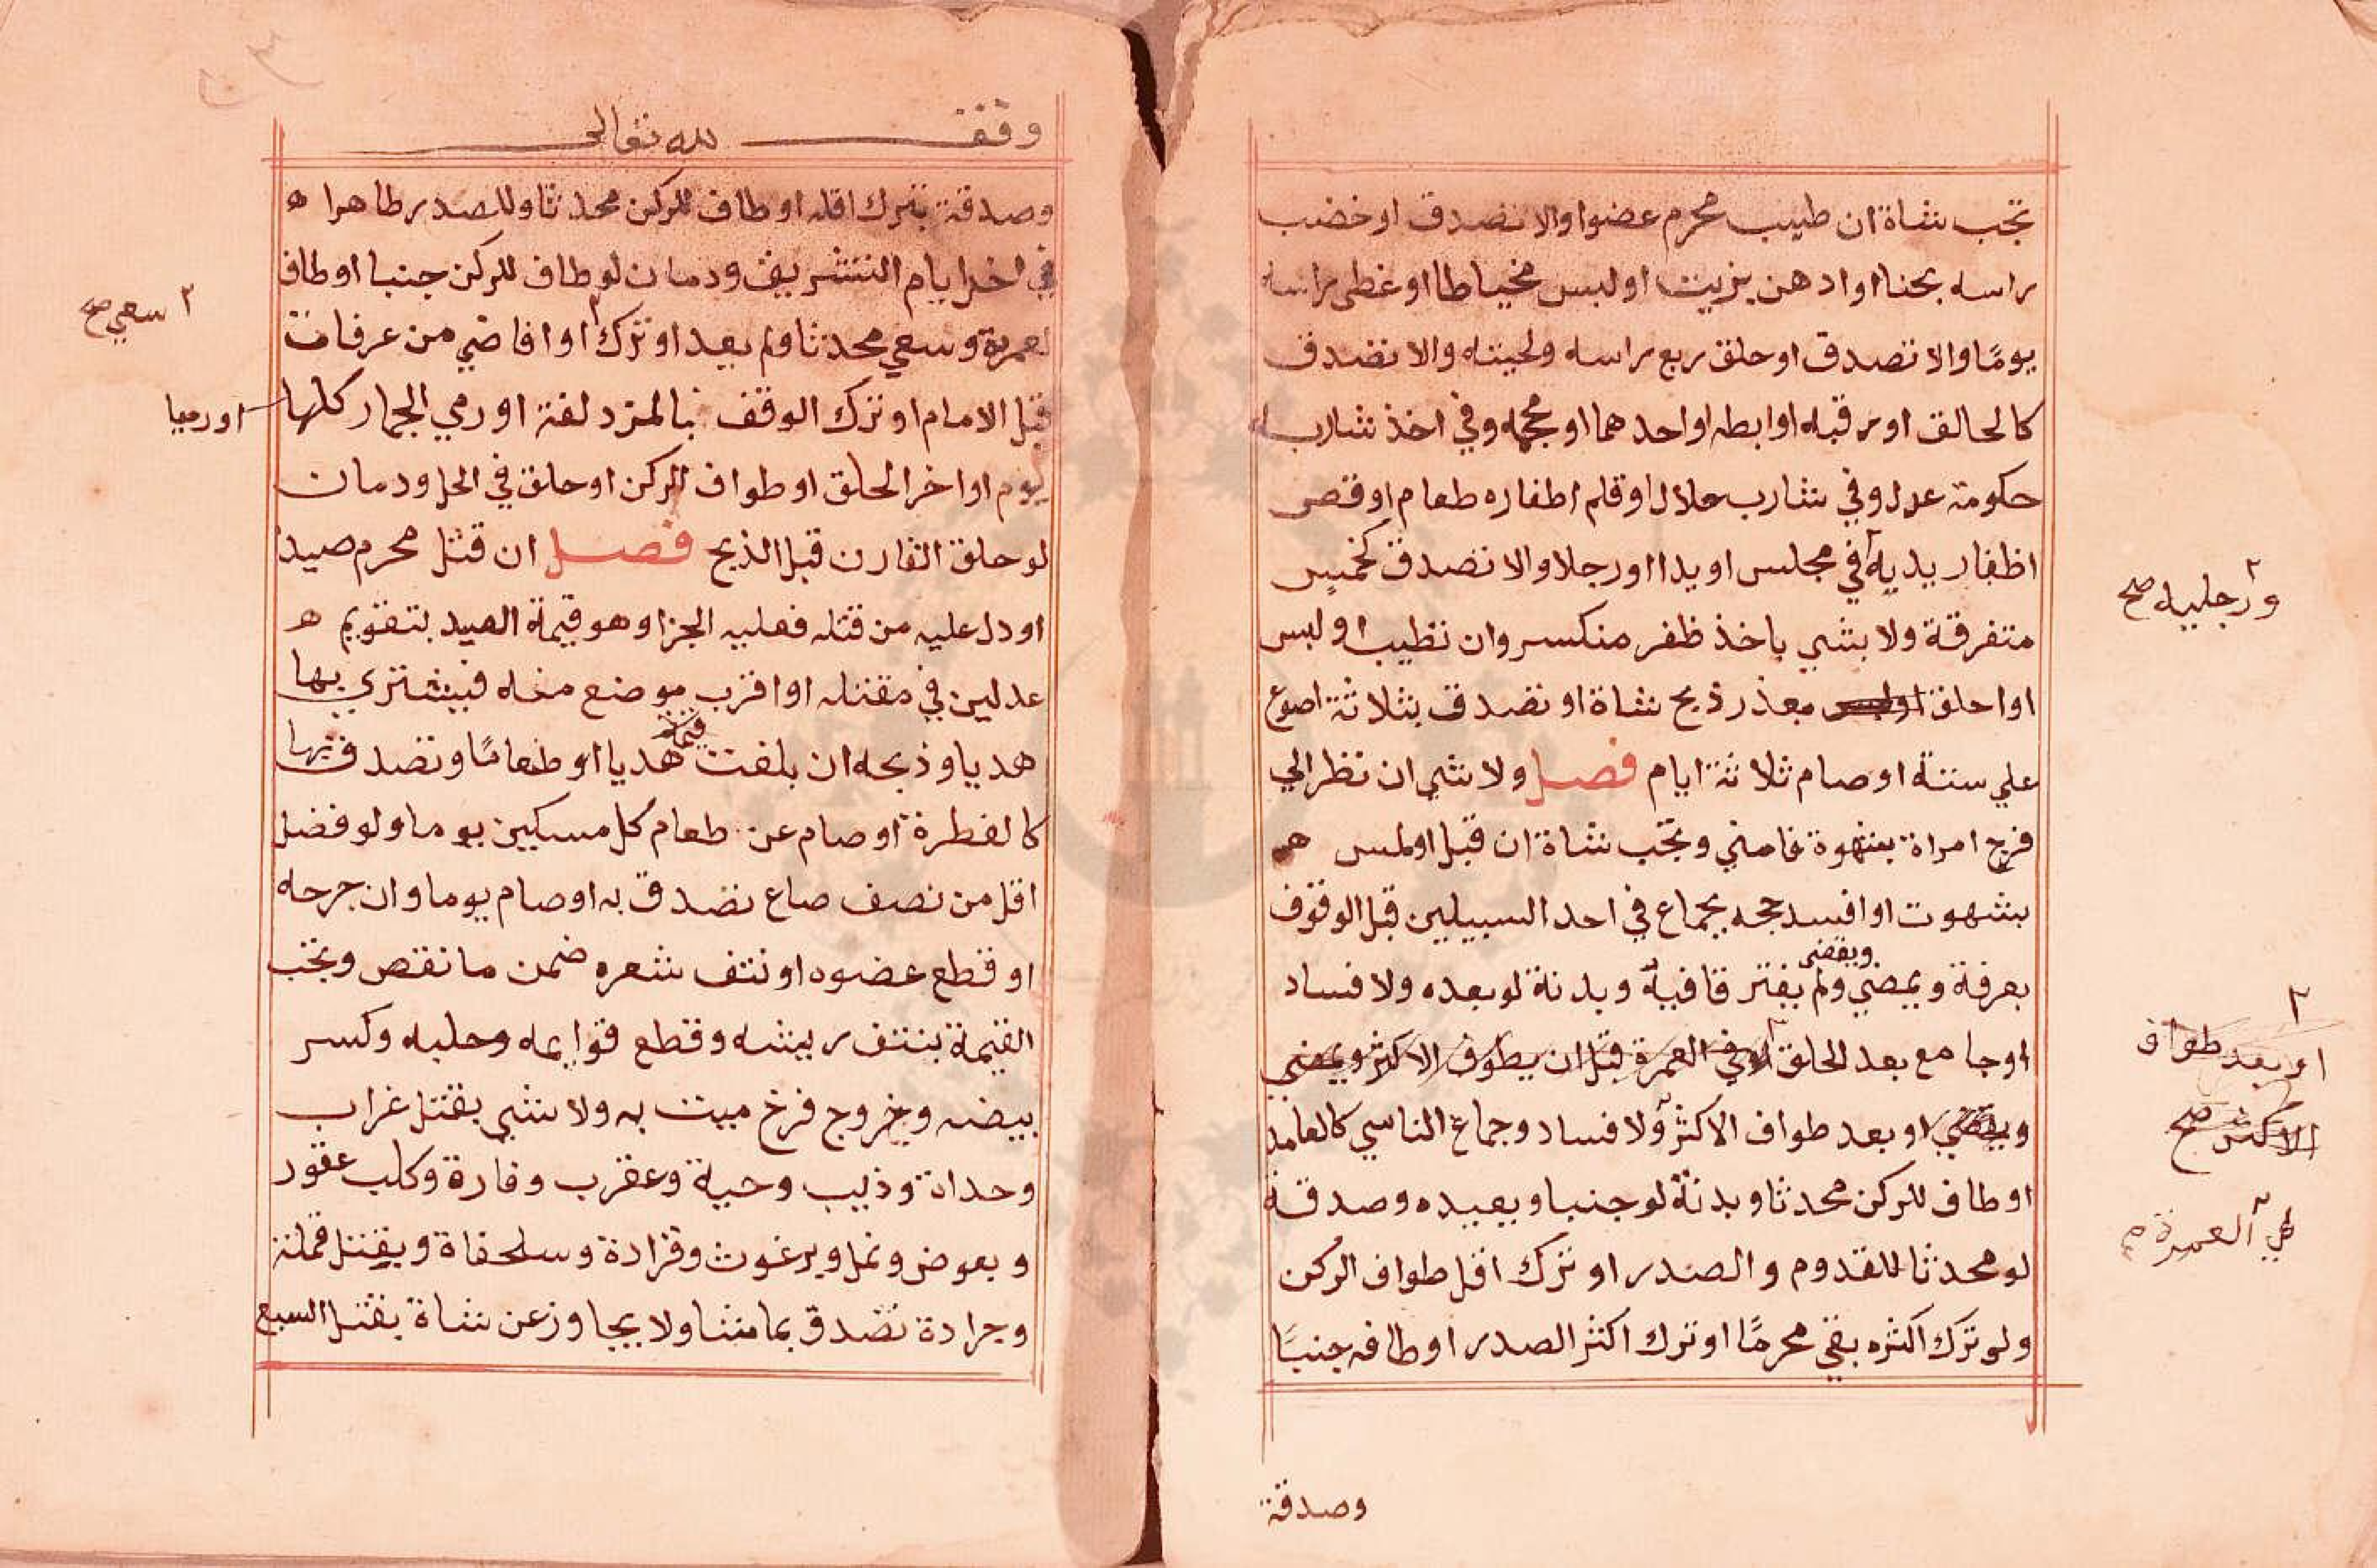 تجب شاة ان طيب محرم عضوا والا تصدق او خضب
راسه بحنا او ادهن بزيت او لبس مخياطا او غطى راسه
يومًا والا تصدق او حلق ربع راسه ولحيته والا تصدق
كالحالق او رقبله او ابطه او احدهما او محجمه وفي اخذ شاربه
حكومة عدل وفي شارب حلال او قلم اظفاره طعام او قص
اظفار يديه في مجلس او يدا او رجلا والا تصدق كخميس
ورجليه صح
متفرقة ولا بشي باخذ ظفر منكسر وان تطيب او لبس
او احلق بعذر ذبح شاة او تصدق بثلاثة اصوع
علي ستة او صام ثلاثة ايام فصل ولا شي ان نظر الي
فرج امراة بشهوة فامني وتجب شاة ان قبل او لمس ه
بشهوت او افسد حجه بجماع في احد السبيلين قبل الوقوف
ويقضى
بعرفة ويمضي ولم يفتر قا فيه وبدنة لو بعده ولا فساد
او جامع بعد الحلق او في العمرة قبل ان يطوف الاكثر ويمضي
او بعد طواف
الاكثر صح
ويقضي او بعد طواف الاكثر ولا فساد وجماع الناسي كالعامد
او طاف للركن محدثا وبدنة لو جنبا ويعيده وصدقة
في العمرة
لو محدثا للقدوم والصدر او ترك اقل طواف الركن
ولو ترك اكثره بقي محرمًا او ترك اكثر الصدر او طافه جنبًا
وصدقة
وقف لله تعالى
وصدقة بترك اقله او طاف للركن محدثا وللصدر طاهرا ه
في اخر ايام التشريق ودمان لو طاف للركن جنبا او طاف
لعمرة وسعي محدثا ولم يعد او ترك او افاضي من عرفات
٢ سعي صح
قبل الامام او ترك الوقف بالمزدلفة او رمي الجمار كلها
او رميا
يوم او اخر الحلق او طواف الركن او حلق في الحل ودمان
لو حلق القارن قبل الذبح فصل ان قتل محرم صيدا
او دل عليه من قتله فعليه الجزا وهو قيمة الصيد بتقويم ه
عدلين في مقتله او اقرب موضع منه فيشتري بها
قيمته
هديا وذبحه ان بلغت هديا او طعامًا وتصدق بها
كالفطرة او صام عن طعام كل مسكين يوما ولو فضل
اقل من نصف صاع تصدق به او صام يوما وان جرحه
او قطع عضوه او نتف شعره ضمن ما نقص وتجب
القيمة بنتف ريشه وقطع قوايمه وحلبه وكسر
بيضه وخروج فرخ ميت به ولا شي بقتل غراب
وحداة وذيب وحية وعقرب وفارة وكلب عقور
وبعوض ونمل وبرغوث وقرادة وسلحفاة وبقتل قملة
وجرادة تصدق بما شا ولا يجاوز عن شاة بقتل السبع